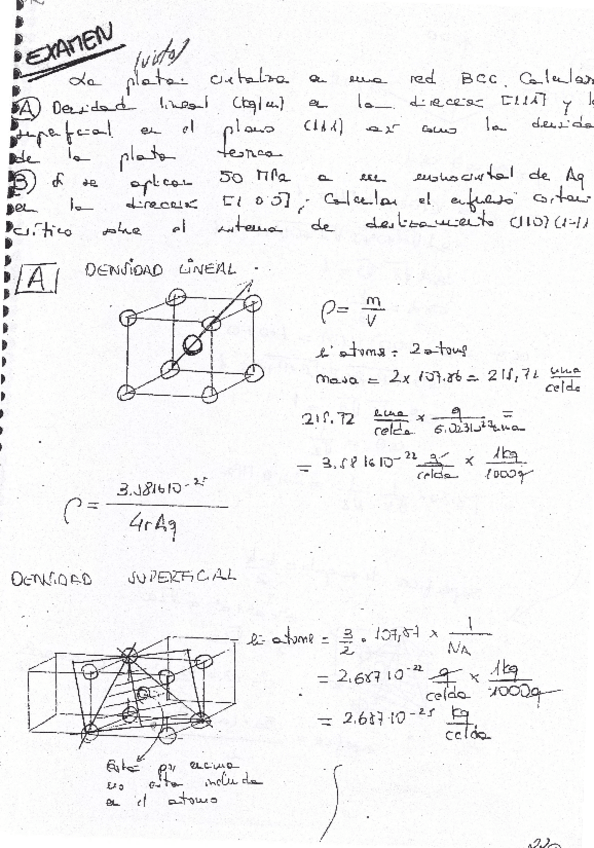 EXAMEN (visto)
La plata cristaliza en una red BCC. Calcular
(A) Densidad lineal (kg/m) en la dirección [111] y la
superficial en el plano (111) así como la densidad
de la plata teórica
(B) Si se aplican 50 MPa a un monocristal de Ag
en la dirección [100], Calcular el esfuerzo cortante
crítico sobre el sistema de deslizamiento (110)
A DENSIDAD LINEAL.
ρ = m/V
nº atoms = 2 atoms
masa = 2 x 107.86 = 215,72 uma/celda
215.72 uma/celda x g/6.023·10²³ uma =
= 3.5816·10⁻²² g/celda x 1kg/1000g
ρ = 3.5816·10⁻²⁵ / 4rAg
DENSIDAD SUPERFICIAL
nº atoms = 3/2 · 107,87 x 1/NA
= 2.687·10⁻²² g/celda x 1kg/1000g
= 2.687·10⁻²⁵ kg/celda
Este por encima
no está incluido
en el átomo